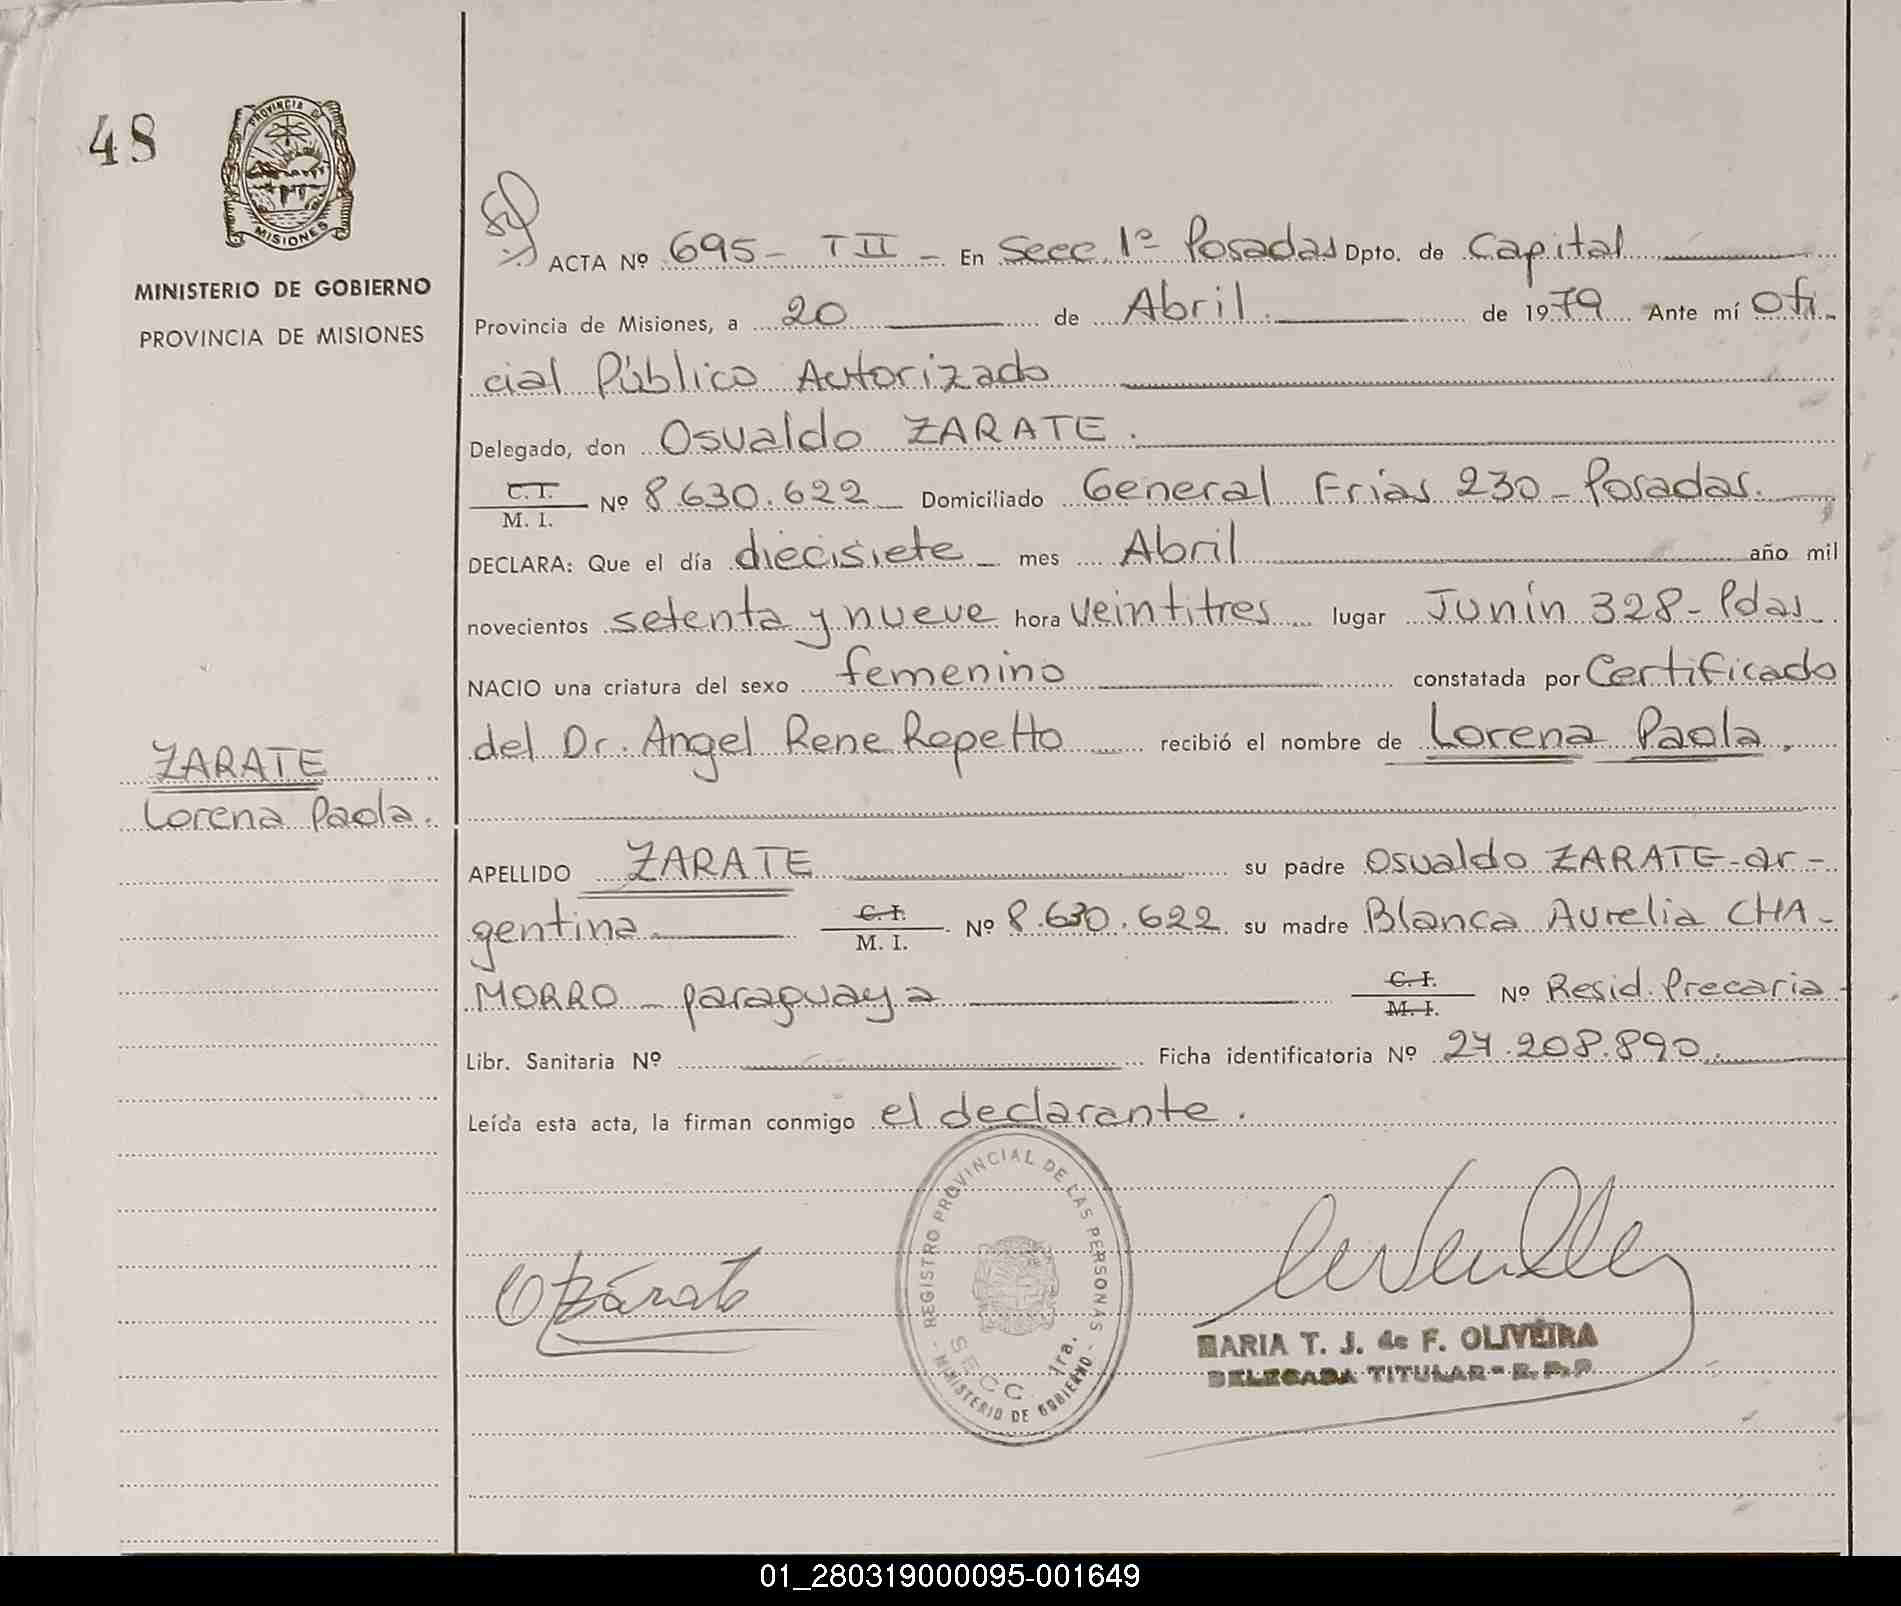 48
PROVINCIA DE
MISIONES
MINISTERIO DE GOBIERNO
PROVINCIA DE MISIONES
ZARATE
Lorena Paola.
ACTA Nº 695 - T II - En Secc. 1ª Posadas Dpto. de Capital
Provincia de Misiones, a 20 de Abril. de 1979 Ante mí Ofi-
cial Público Autorizado
Delegado, don Osvaldo ZARATE.
C.I. M. I. Nº 8.630.622 Domiciliado General Frias 230 - Posadas.
DECLARA: Que el día diecisiete mes Abril año mil
novecientos setenta y nueve hora veintitres lugar Junín 328 - Pdas
NACIO una criatura del sexo femenino constatada por Certificado
del Dr. Angel Rene Repetto recibió el nombre de Lorena Paola,
APELLIDO ZARATE su padre Osvaldo ZARATE - ar-
gentina. C.I. M. I. Nº 8.630.622 su madre Blanca Aurelia CHA-
MORRO - paraguaya C.I. M.I. Nº Resid. Precaria
Libr. Sanitaria Nº Ficha identificatoria Nº 27.208.890.
Leída esta acta, la firman conmigo el declarante.
REGISTRO PROVINCIAL DE LAS PERSONAS
SECC. 1ra.
- MINISTERIO DE GOBIERNO -
O Zárate
MARIA T. J. de F. OLIVEIRA
DELEGADA TITULAR - R. P. P.
01_280319000095-001649